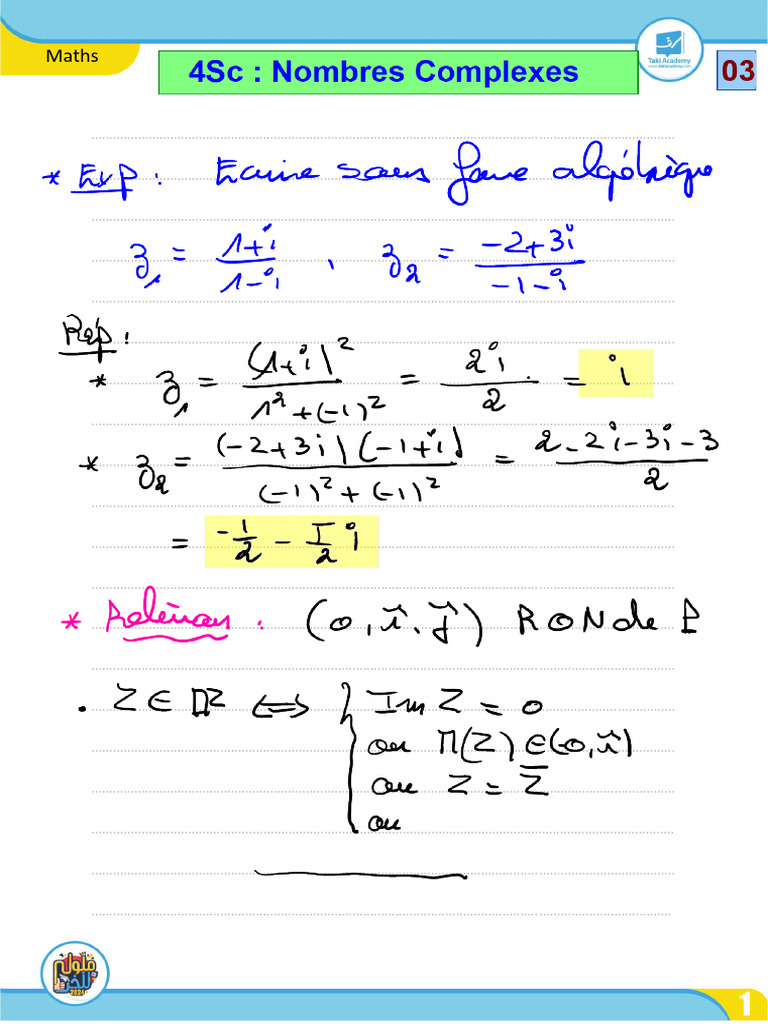 Maths
4Sc : Nombres Complexes
Taki Academy
www.takiacademy.com
03
* Exp : Ecrire sous forme algébrique
z₁ = (1+i)/(1-i) , z₂ = (-2+3i)/(-1-i)
Rép :
* z₁ = (1+i)²/(1²+(-1)²) = 2i/2 = i
* z₂ = (-2+3i)(-1+i)/((-1)²+(-1)²) = (2-2i-3i-3)/2
= -1/2 - 5/2 i
* : (O, i⃗, j⃗) RON de P
. Z ∈ ℝ ⇔ { Im Z = 0
ou M(Z) ∈ (O, i⃗)
ou Z = Z̅
ou
1